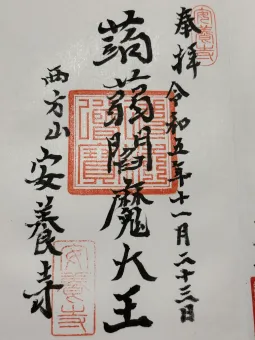 奉拝 令和五年十一月二十三日
蒟蒻閻魔大王
西方山 安養寺
安養寺